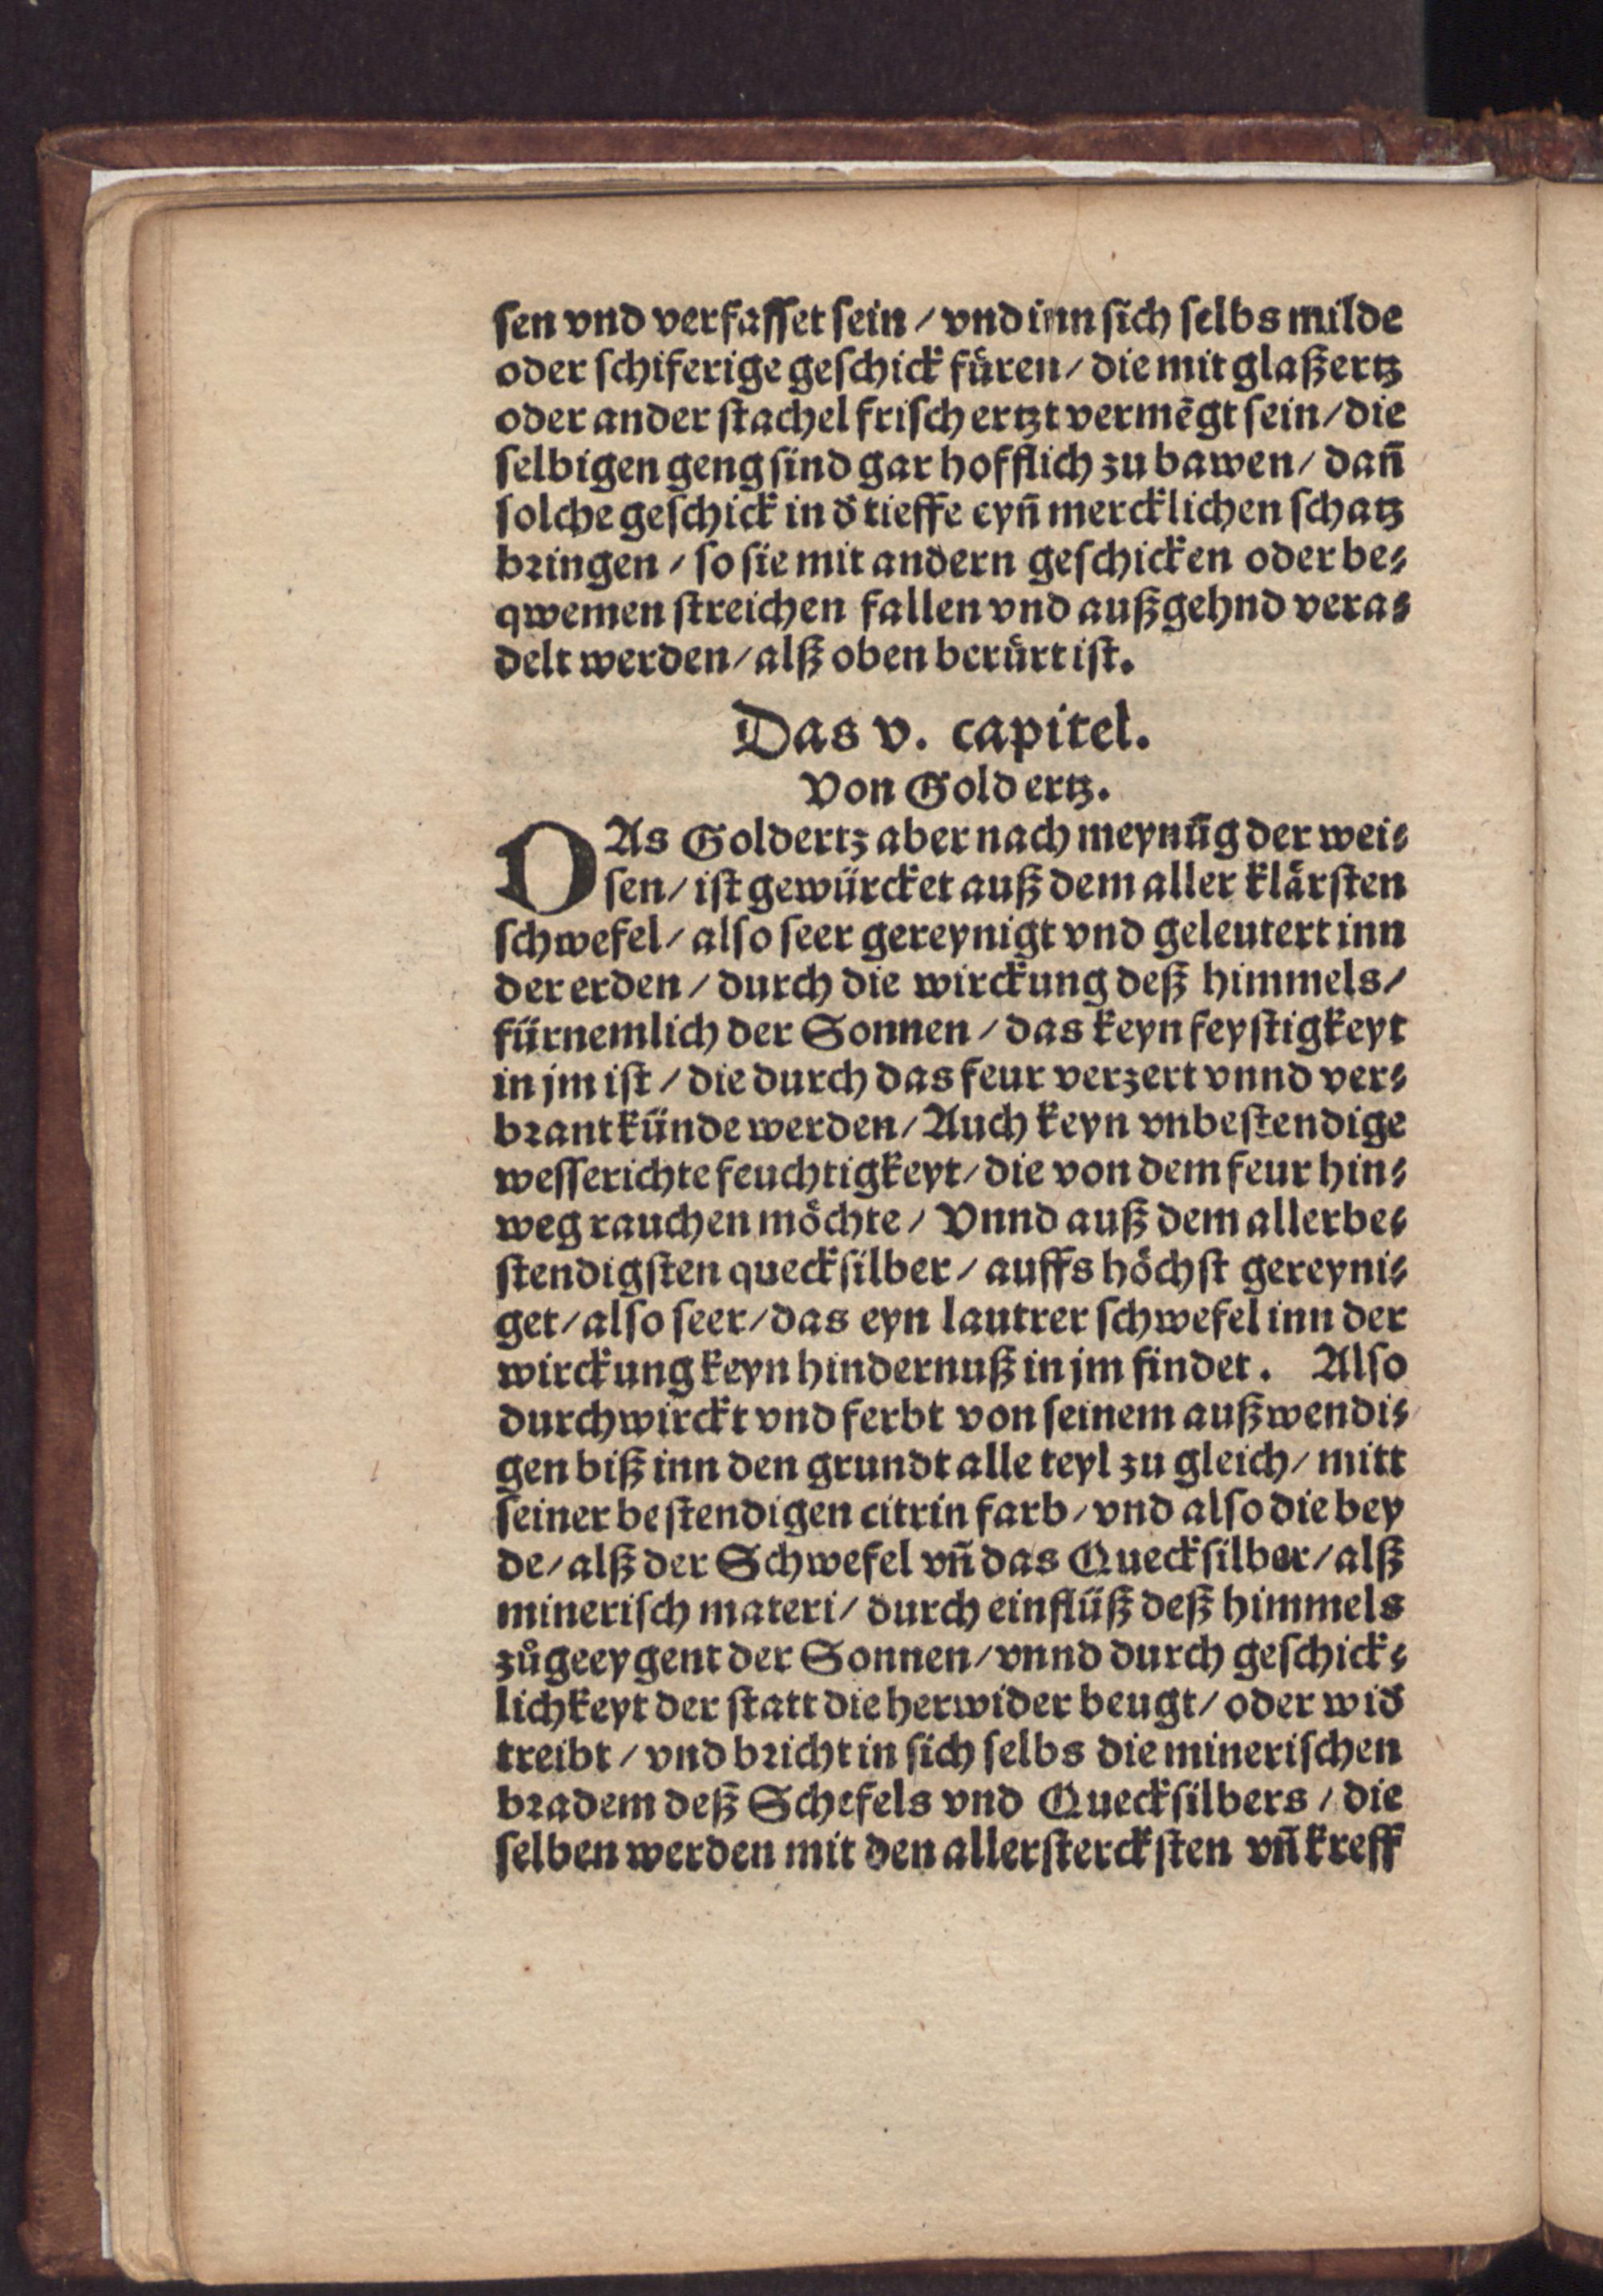 sen vnd verfasset sein / vnd inn sich selbs milde
oder schiferige geschick fuͤren / die mit glaßertz
oder ander stachel frisch ertzt vermẽgt sein / die
selbigen geng sind gar hofflich zu bawen / dañ
solche geschick in d̕ tieffe eyñ mercklichen schatz
bringen / so sie mit andern geschicken oder be⸗
qwemen streichen fallen vnd außgehnd vera⸗
delt werden / alß oben beruͤrt ist.
Das v. capitel.
Von Gold ertz.
DAs Goldertz aber nach meynũg der wei⸗
sen / ist gewürcket auß dem aller klaͤrsten
schwefel / also seer gereynigt vnd geleutert inn
der erden / durch die wirckung deß himmels /
fürnemlich der Sonnen / das keyn feystigkeyt
in jm ist / die durch das feur verzert vnnd ver⸗
brant künde werden / Auch keyn vnbestendige
wesserichte feuchtigkeyt / die von dem feur hin⸗
weg rauchen moͤchte / Vnnd auß dem allerbe⸗
stendigsten quecksilber / auffs hoͤchst gereyni⸗
get / also seer / das eyn lautrer schwefel inn der
wirckung keyn hindernuß in jm findet. Also
durchwirckt vnd ferbt von seinem außwendi⸗
gen biß inn den grundt alle teyl zu gleich / mitt
seiner bestendigen citrin farb / vnd also die bey
de / alß der Schwefel vñ das Quecksilber / alß
minerisch materi / durch einflüß deß himmels
zuͦgeeygent der Sonnen / vnnd durch geschick⸗
lichkeyt der statt die herwider beugt / oder wid̕
treibt / vnd bricht in sich selbs die minerischen
bradem deß Schefels vnd Quecksilbers / die
selben werden mit den allerstercksten vñ kreff